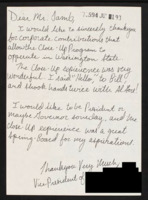 Dear Mr. Sarnts
I would like to sincerely thank you
for corporate contributions that
allow the Close-Up Program to
operate in Washington State.
The Close-Up experience was very
wonderful. I said "Hello," to Bill
and shook hands twice with Al Gore!
I would like to be President or
maybe Governor someday, and the
Close-Up experience was a great
Spring-Board for my aspirations.
Thank you Very Much,
Vice President of